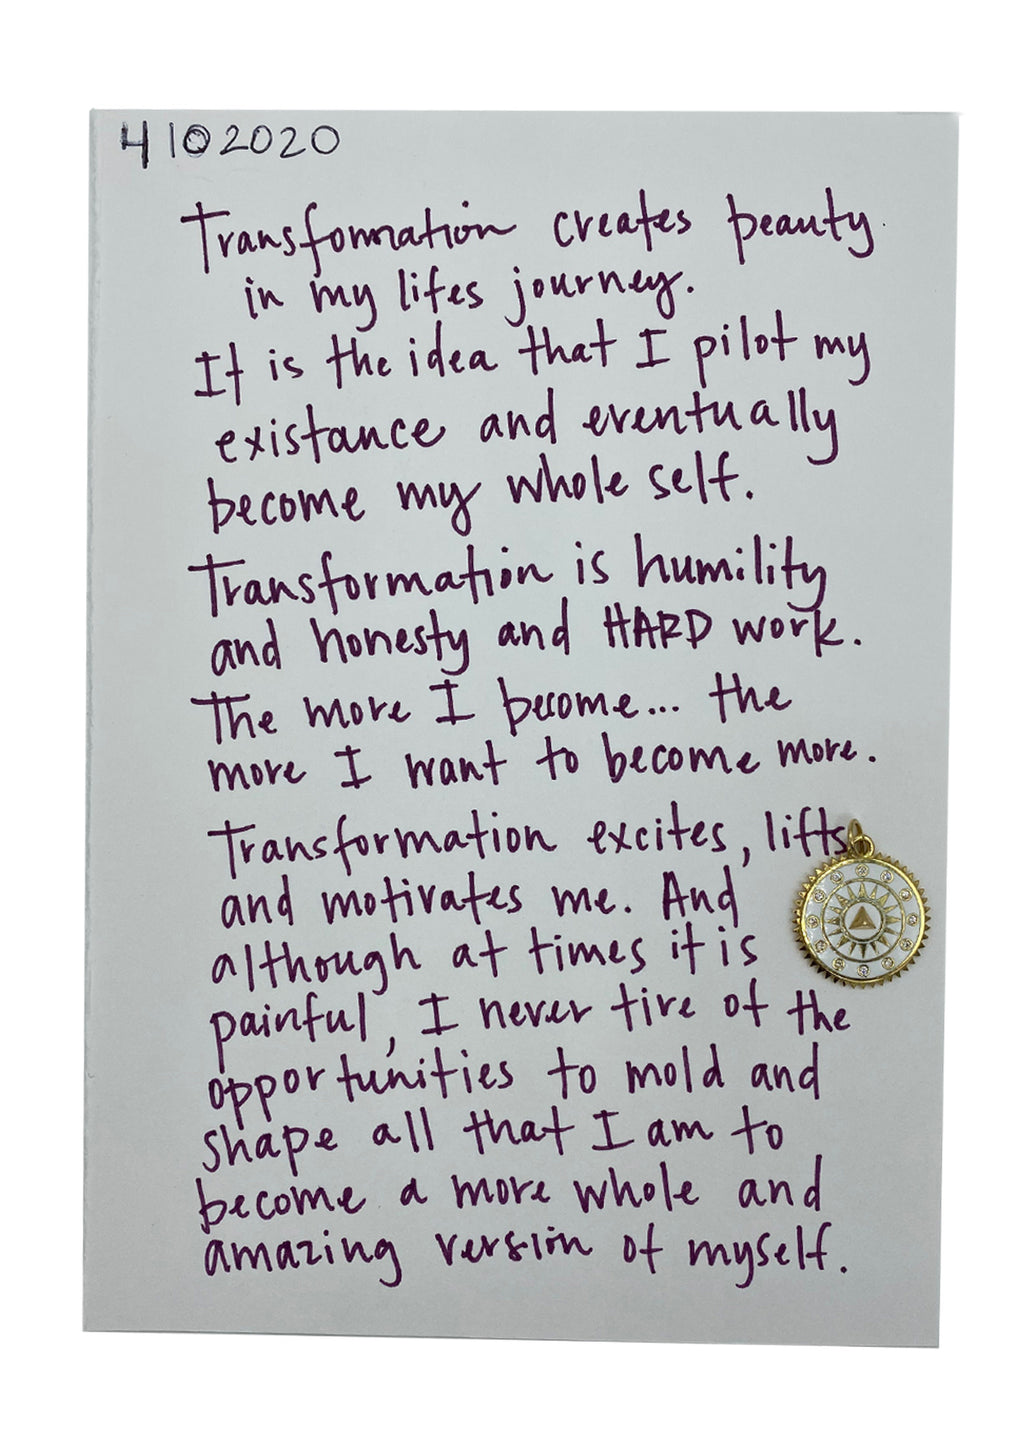 4 10 2020
Transformation creates beauty
in my lifes journey.
It is the idea that I pilot my
existance and eventually
become my whole self.
Transformation is humility
and honesty and HARD work.
The more I become... the
more I want to become more.
Transformation excites, lifts
and motivates me. And
although at times it is
painful, I never tire of the
opportunities to mold and
shape all that I am to
become a more whole and
amazing version of myself.